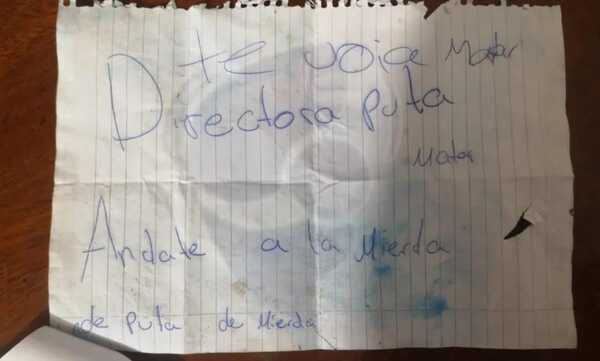 te voia Matar
Directora puta
Matar
Andate a la Mierda
de puta de Mierda